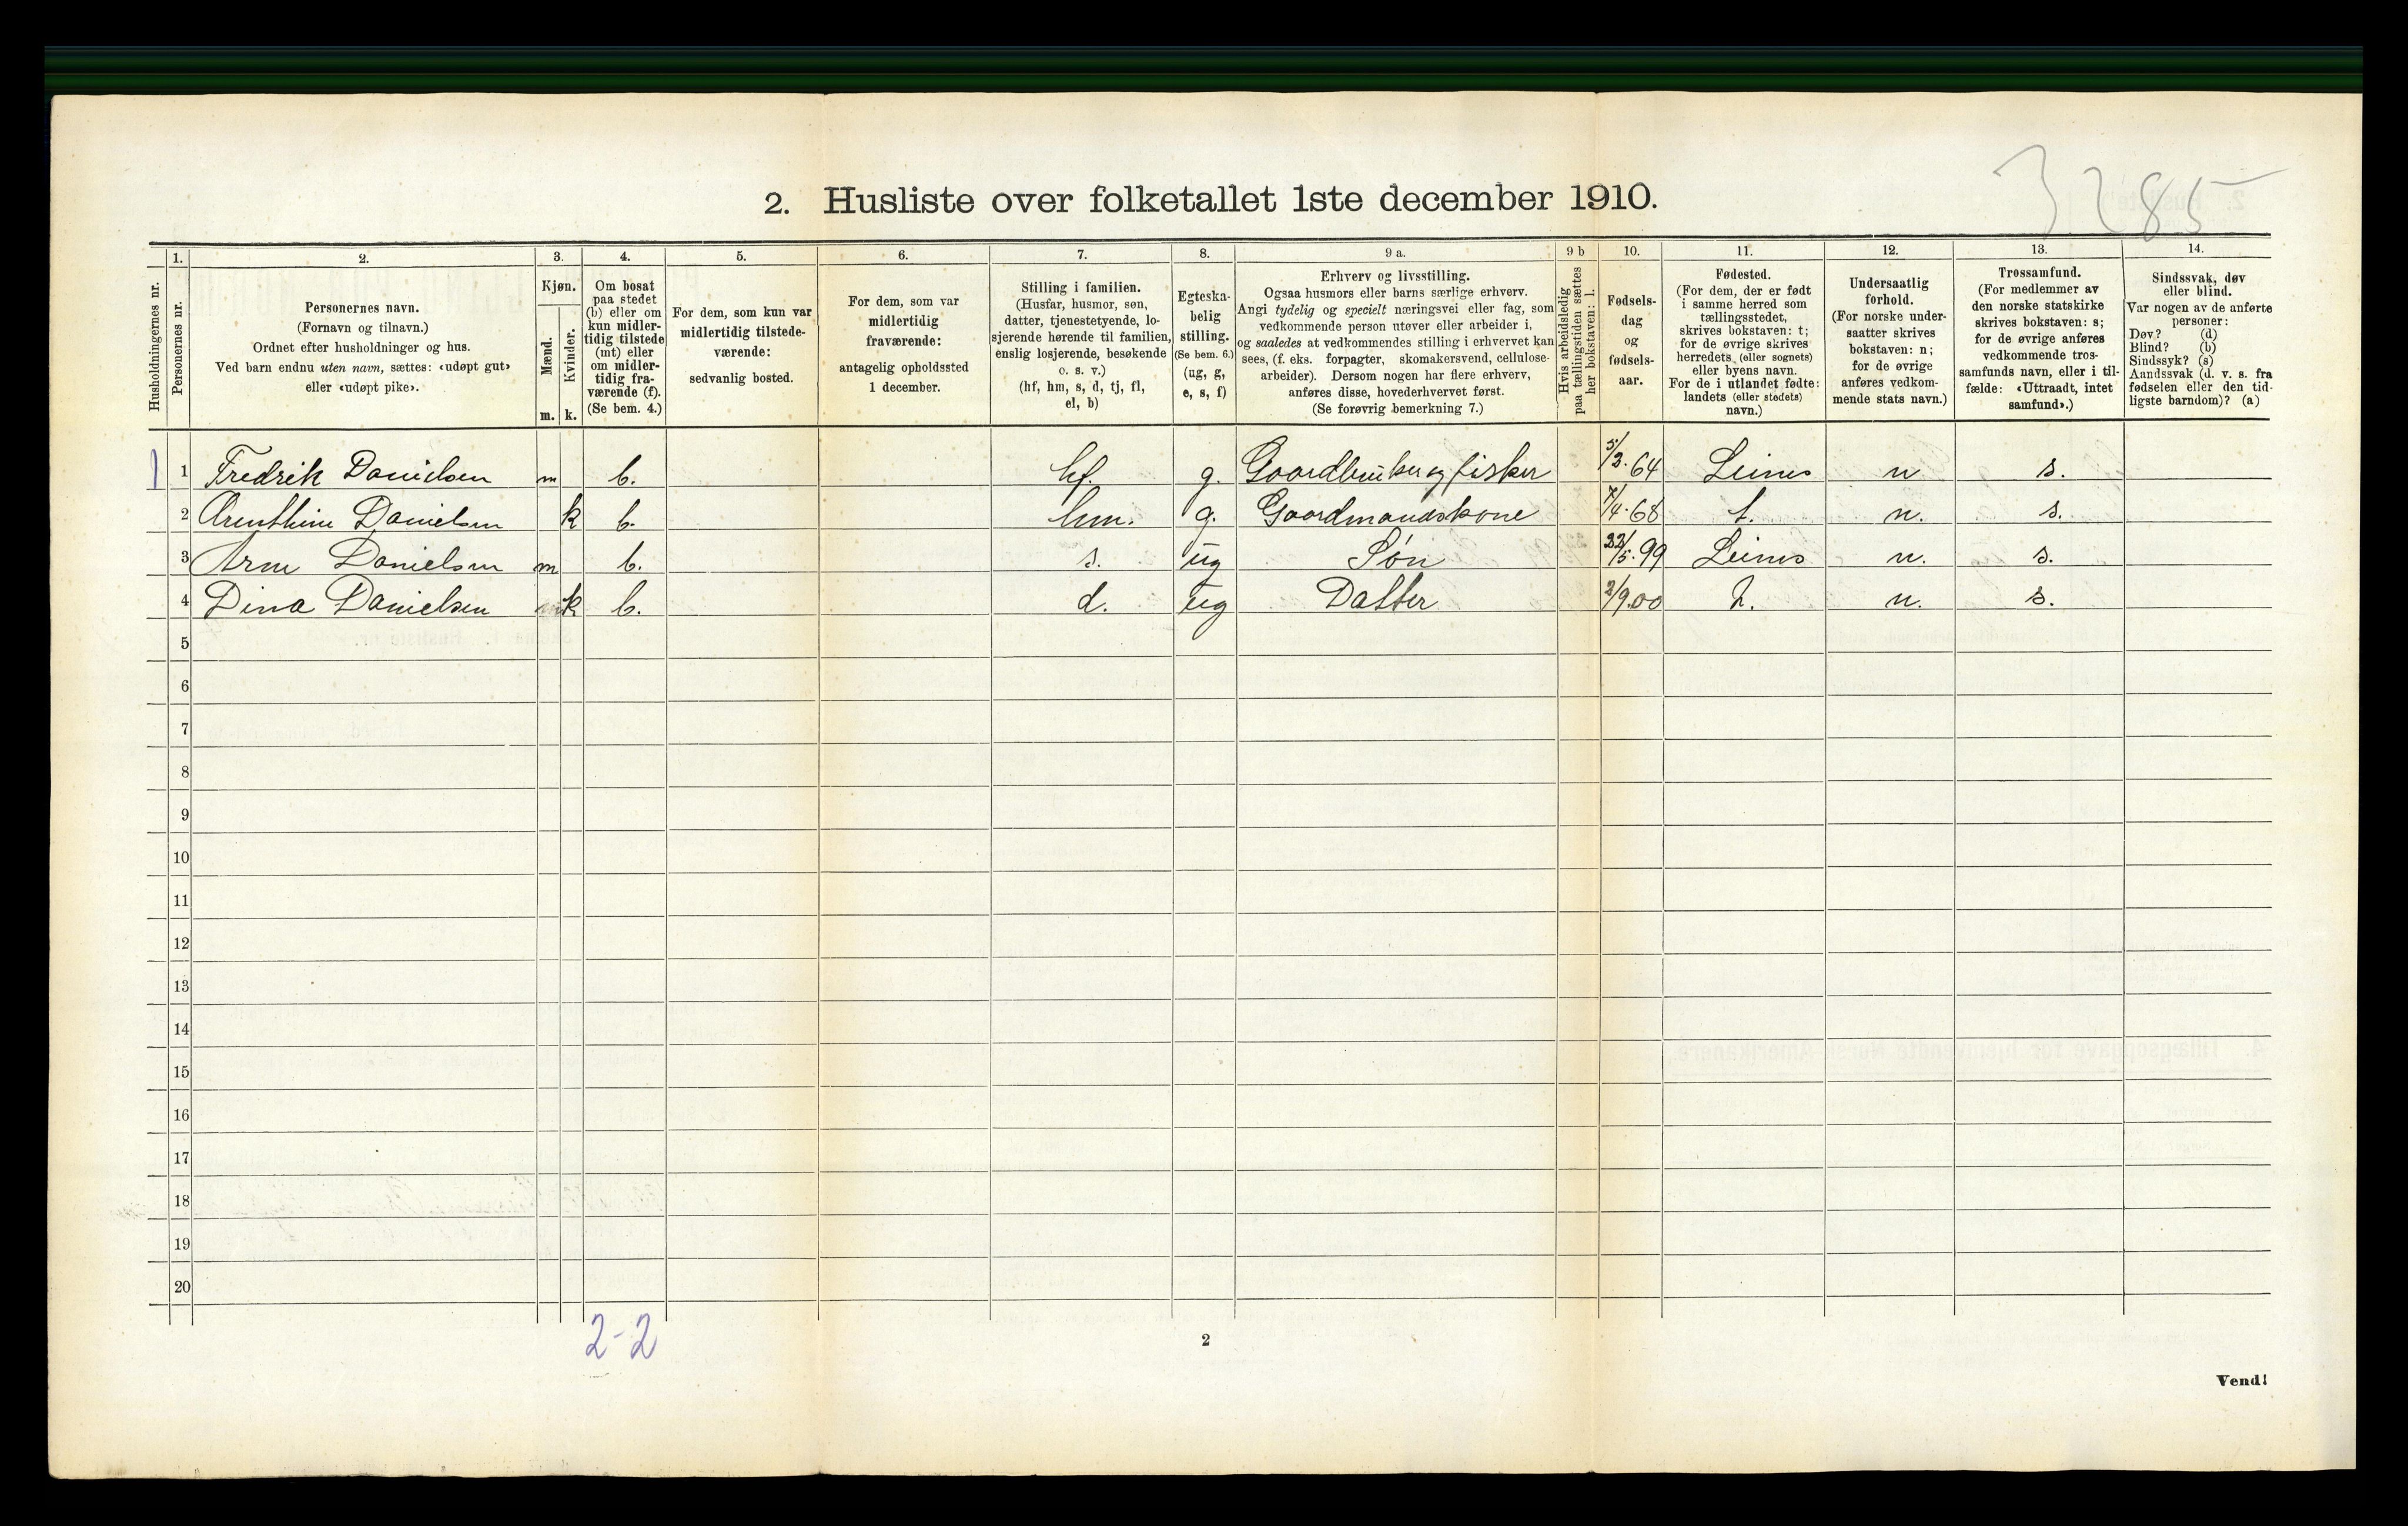 3285
2. Husliste over folketallet 1ste december 1910.
Husholdningernes nr.
1.
Personernes nr.
2.
Personernes navn.
(Fornavn og tilnavn.)
Ordnet efter husholdninger og hus.
Ved barn endnu uten navn, sættes: «udøpt gut»
eller «udøpt pike».
3.
Kjøn.
Mænd.
m.
Kvinder.
k.
4.
Om bosat
paa stedet
(b) eller om
kun midler-
tidig tilstede
(mt) eller
om midler-
tidig fra-
værende (f).
(Se bem. 4.)
5.
For dem, som kun var
midlertidig tilstede-
værende:
sedvanlig bosted.
6.
For dem, som var
midlertidig
fraværende:
antagelig opholdssted
1 december.
7.
Stilling i familien.
(Husfar, husmor, søn,
datter, tjenestetyende, lo-
sjerende hørende til familien,
enslig losjerende, besøkende
o. s. v.)
(hf, hm, s, d, tj, fl,
el, b)
8.
Egteska-
belig
stilling.
(Se bem. 6.)
(ug, g,
e, s, f)
9 a.
Erhverv og livsstilling.
Ogsaa husmors eller barns særlige erhverv.
Angi tydelig og specielt næringsvei eller fag, som
vedkommende person utøver eller arbeider i,
og saaledes at vedkommendes stilling i erhvervet kan
sees, (f. eks. forpagter, skomakersvend, cellulose-
arbeider). Dersom nogen har flere erhverv,
anføres disse, hovederhvervet først.
(Se forøvrig bemerkning 7.)
9 b
Hvis arbeidsledig
paa tællingstiden sættes
her bokstaven: l.
10.
Fødsels-
dag
og
fødsels-
aar.
11.
Fødested.
(For dem, der er født
i samme herred som
tællingsstedet,
skrives bokstaven: t;
for de øvrige skrives
herredets (eller sognets)
eller byens navn.
For de i utlandet fødte:
landets (eller stedets)
navn.)
12.
Undersaatlig
forhold.
(For norske under-
saatter skrives
bokstaven: n;
for de øvrige
anføres vedkom-
mende stats navn.)
13.
Trossamfund.
(For medlemmer av
den norske statskirke
skrives bokstaven: s;
for de øvrige anføres
vedkommende tros-
samfunds navn, eller i til-
fælde: «Uttraadt, intet
samfund».)
14.
Sindssvak, døv
eller blind.
Var nogen av de anførte
personer:
Døv? (d)
Blind? (b)
Sindssyk? (s)
Aandssvak (d. v. s. fra
fødselen eller den tid-
ligste barndom)? (a)
1 1 Fredrik Danielsen m b. hf. g. Gaardbruker og fisker 5/3. 64 Leines n s.
2 Arenthine Danielsen k b. hm. g. Gaardmandskone 7/4. 68 t. n. s.
3 Arne Danielsen m b. s. ug Søn 22/5. 99 Leines n. s.
4 Dina Danielsen k b. d. ug Datter 2/9.00 n. s.
5
6
7
8
9
10
11
12
13
14
15
16
17
18
19
20
2-2
2
Vend!